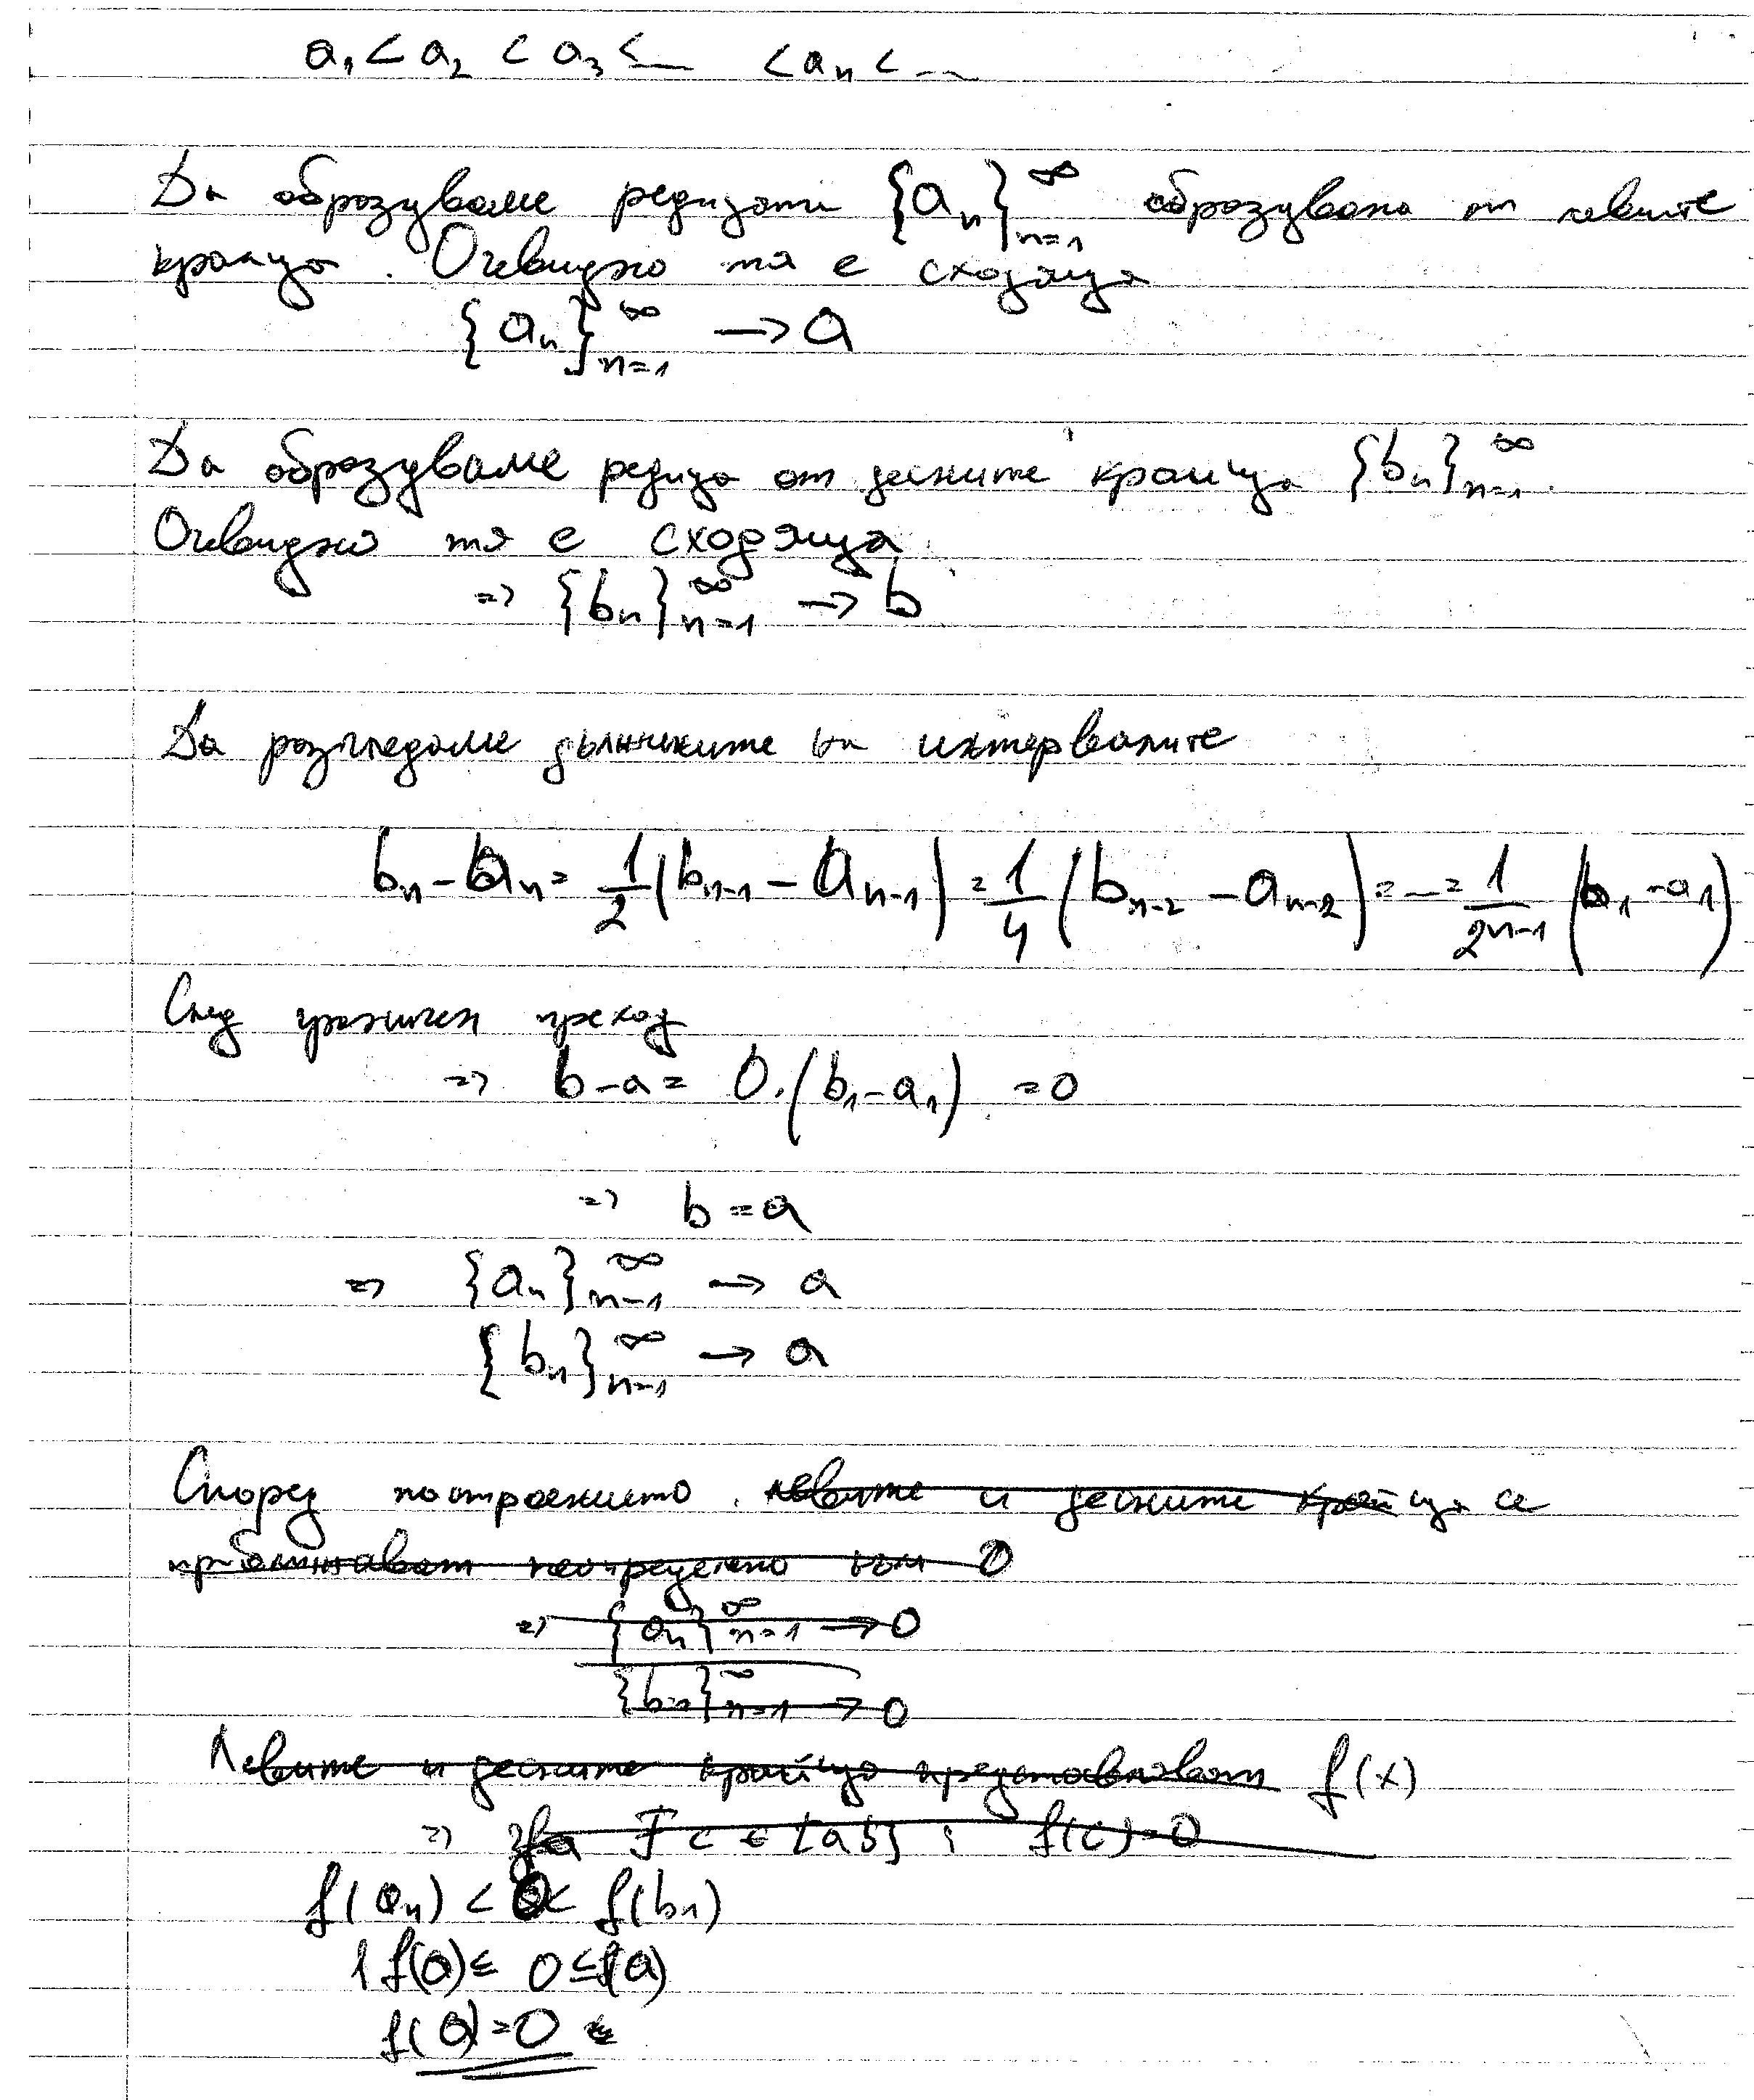 a₁ < a₂ < a₃ < ... < aₙ < ...
Да образуваме редицата {aₙ}ₙ₌₁^∞ образувана от левите
краища. Очевидно тя е сходяща
{aₙ}ₙ₌₁^∞ → a
Да образуваме редица от десните краища {bₙ}ₙ₌₁^∞.
Очевидно тя е сходяща
=> {bₙ}ₙ₌₁^∞ → b
Да разгледаме дължините на интервалите
bₙ - aₙ = 1/2 (bₙ₋₁ - aₙ₋₁) = 1/4 (bₙ₋₂ - aₙ₋₂) = ... = 1/2ⁿ⁻¹ (b₁ - a₁)
След граничен преход
=> b - a = 0.(b₁ - a₁) = 0
=> b = a
=> {aₙ}ₙ₌₁^∞ → a
{bₙ}ₙ₌₁^∞ → a
Според построението левите и десните краища се
приближават неопределено към 0
=> {aₙ}ₙ₌₁^∞ → 0
{bₙ}ₙ₌₁^∞ → 0
Левите и десните краища представляват f(x)
=> ∃ c ∈ [a b] : f(c) = 0
f(aₙ) < 0 < f(bₙ)
f(a) ≤ 0 ≤ f(a)
f(a) = 0